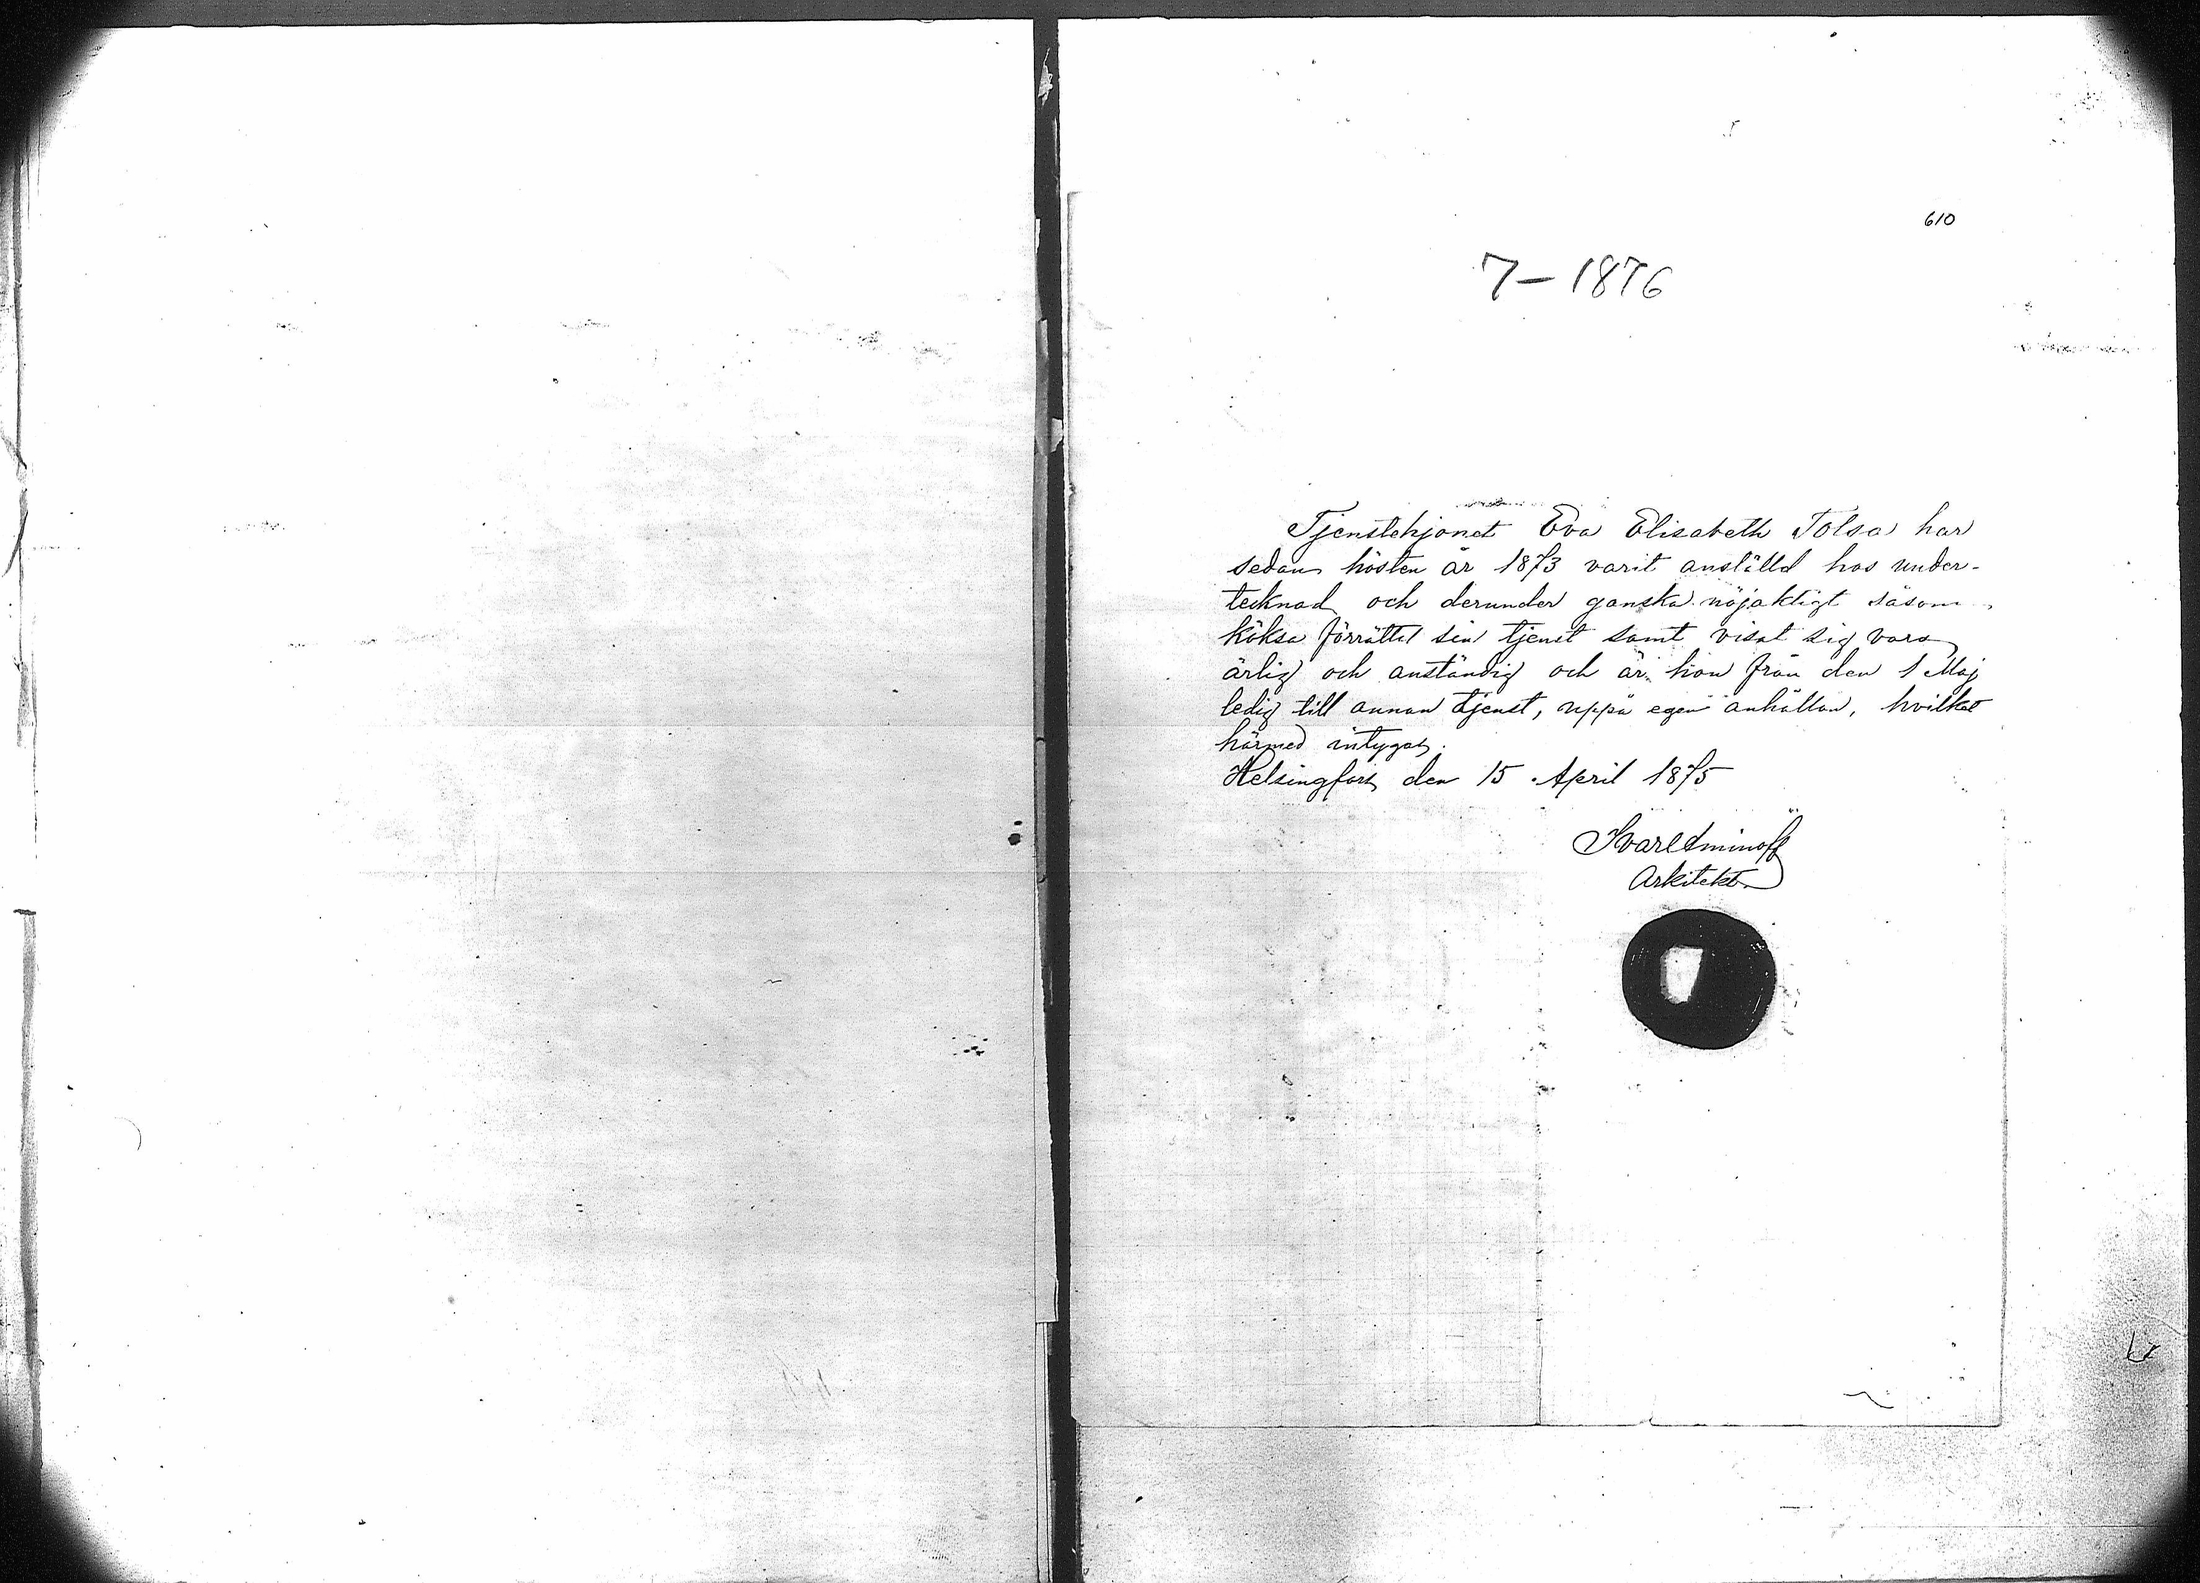 610
7-1876
Tjenstehjonet Eva Elisabeth Tolsa har
sedan hösten år 1873 varit anställd hos under-
tecknad och derunder ganska nöjaktigt såsom
köksa förrättet sin tjenst samt visat sig vara
ärlig och anständig och är hon från den 1 Maj
ledig till annan tjenst, uppå egen anhållan, hvilket
härmed intygas.
Helsingfors den 15 April 1875
Ivar Aminoff
Arkitekt